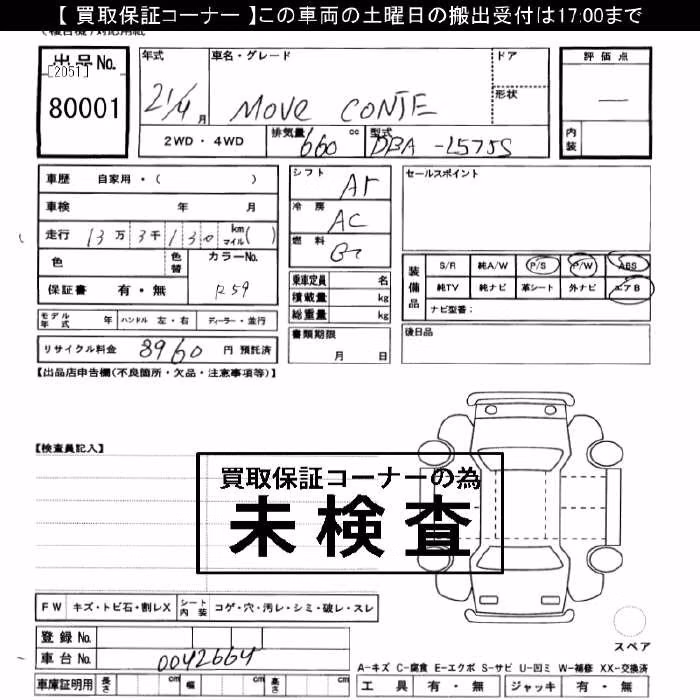 【 買取保証コーナー 】この車両の土曜日の搬出受付は17:00まで
出品No.
[2051]
80001
年式
21/4月
車名・グレード
MOVE CONTE
ドア
形状
評価点
—
内装
2WD・4WD
排気量
660 cc
型式
DBA-L575S
車歴 自家用・( )
車検 年 月
走行 13万3千130 km マイル( )
色
色替
カラーNo.
R59
保証書 有・無
シフト
AT
冷房
AC
燃料
乗車定員 名
積載量 kg
総重量 kg
書類期限
月 日
セールスポイント
装備品
S/R 純A/W P/S P/W ABS
純TV 純ナビ 革シート 外ナビ エアB
ナビ型番:
後日品
モデル年式 年 ハンドル 左・右 ディーラー・並行
リサイクル料金 8960 円 預託済
【出品店申告欄(不良箇所・欠品・注意事項等)】
【検査員記入】
買取保証コーナーの為
未検査
FW キズ・トビ石・割レX シート内装 コゲ・穴・汚レ・シミ・破レ・スレ
登録No.
車台No.
0042664
車庫証明用 長さ cm 幅 cm 高さ cm
スペア
A-キズ C-腐食 E-エクボ S-サビ U-凹ミ W-補修 XX-交換済
工具 有・無 ジャッキ 有・無